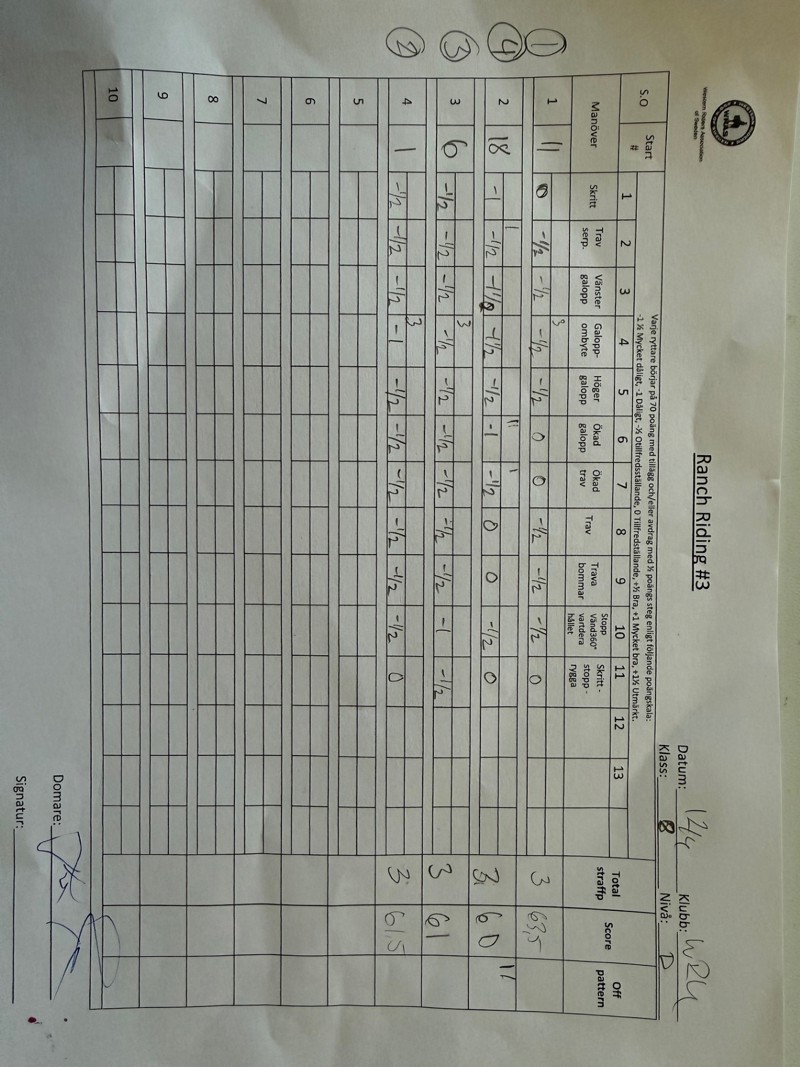 Western Riders Association
of Sweden
W.R.A.S.
Ranch Riding #3
Datum: 12/4 Klubb:
Klass: Nivå: D
Varje ryttare börjar på 70 poäng med tillägg och/eller avdrag med ½ poängs steg enligt följande poängskala:
-1 ½ Mycket dåligt, -1 Dåligt, -½ Otillfredsställande, 0 Tillfredställande, +½ Bra, +1 Mycket bra, +1½ Utmärkt.
S.O Start # 1 2 3 4 5 6 7 8 9 10 11 12 13 Total straffp Score Off pattern
Manöver Skritt Trav serp. Vänster galopp Galopp-ombyte Höger galopp Ökad galopp Ökad trav Trav Trava bommar Stopp Vänd360° vartdera hållet Skritt - stopp - rygga
3
① 1 11 0 -1/2 -1/2 -1/2 -1/2 0 0 -1/2 -1/2 -1/2 0 3 63,5
1 11 1
④ 2 18 -1 -1/2 -1/2 -1/2 -1 -1/2 0 0 -1/2 0 3 60 11
3
③ 3 6 -1/2 -1/2 -1/2 -1/2 -1/2 -1/2 -1/2 -1/2 -1/2 -1 -1/2 3 61
3
② 4 1 -1/2 -1/2 -1/2 -1 -1/2 -1/2 -1/2 -1/2 -1/2 -1/2 0 3 61,5
5
6
7
8
9
10
Domare:
Signatur: